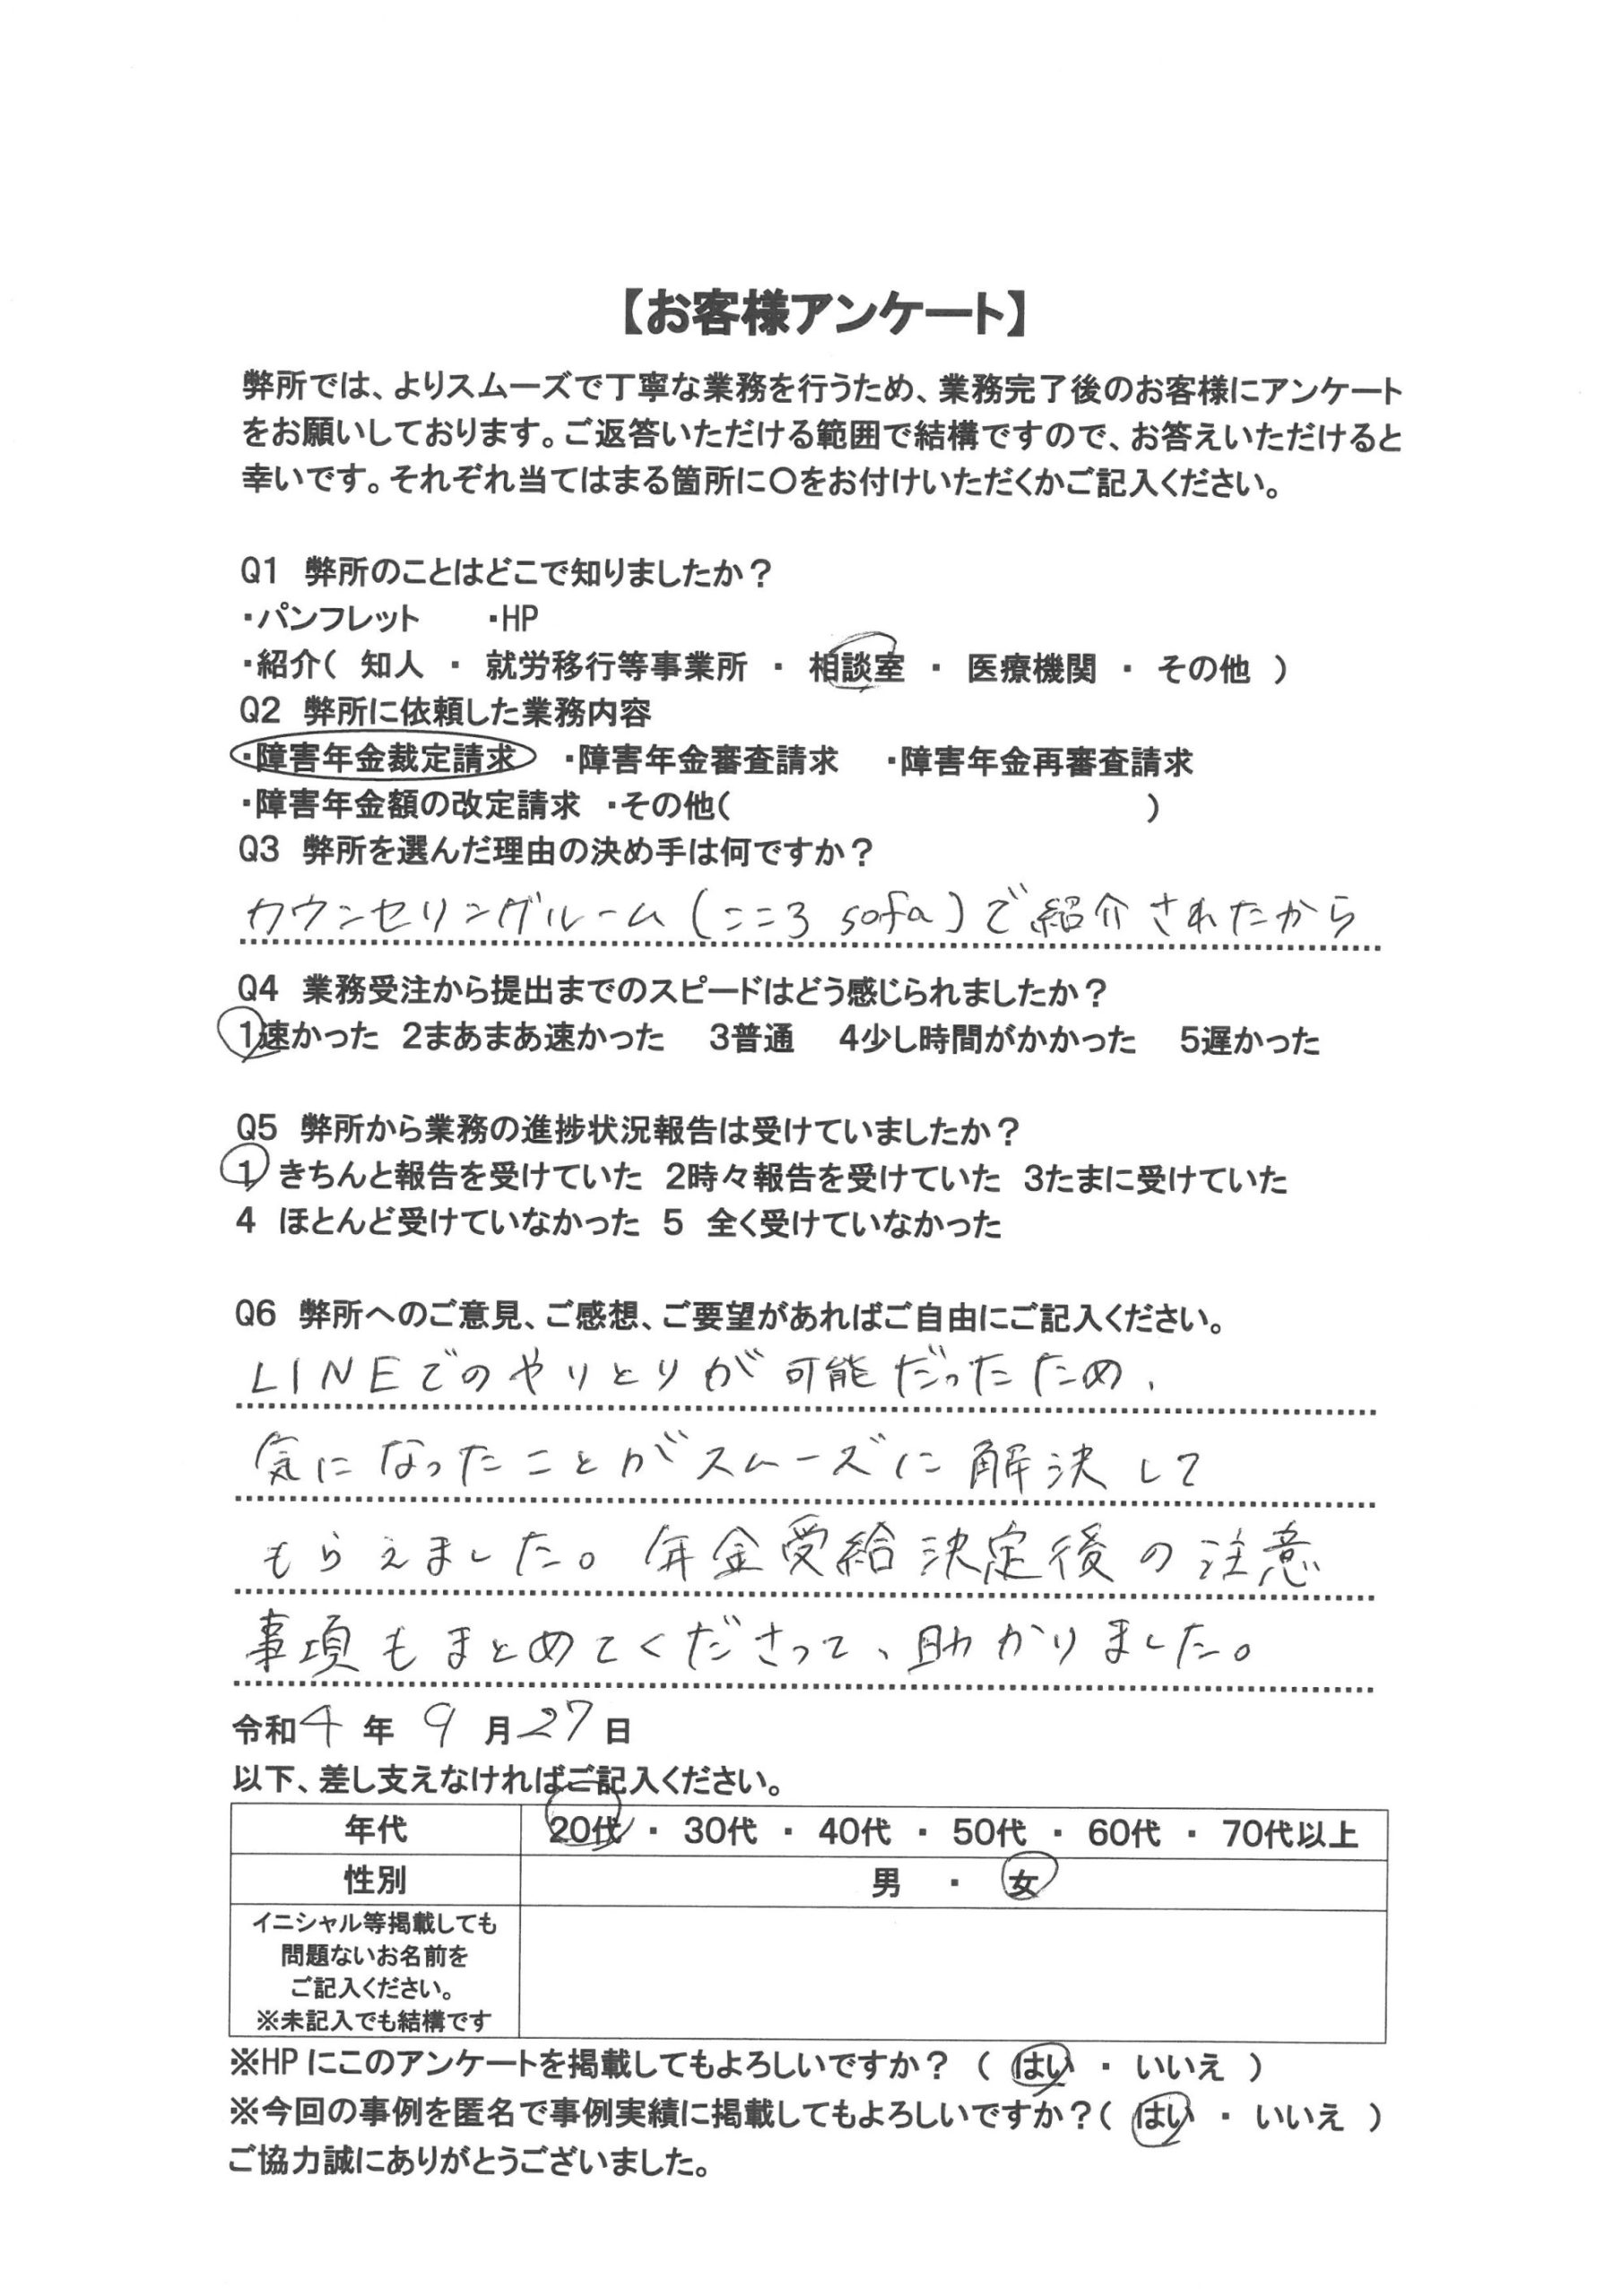 【お客様アンケート】
弊所では、よりスムーズで丁寧な業務を行うため、業務完了後のお客様にアンケート
をお願いしております。ご返答いただける範囲で結構ですので、お答えいただけると
幸いです。それぞれ当てはまる箇所に〇をお付けいただくかご記入ください。
Q1 弊所のことはどこで知りましたか？
・パンフレット ・HP
・紹介（ 知人 ・ 就労移行等事業所 ・ 相談室 ・ 医療機関 ・ その他 ）
Q2 弊所に依頼した業務内容
・障害年金裁定請求 ・障害年金審査請求 ・障害年金再審査請求
・障害年金額の改定請求 ・その他（ ）
Q3 弊所を選んだ理由の決め手は何ですか？
カウンセリングルーム（こころ sofa）で紹介されたから
Q4 業務受注から提出までのスピードはどう感じられましたか？
1速かった 2まあまあ速かった 3普通 4少し時間がかかった 5遅かった
Q5 弊所から業務の進捗状況報告は受けていましたか？
1 きちんと報告を受けていた 2時々報告を受けていた 3たまに受けていた
4 ほとんど受けていなかった 5 全く受けていなかった
Q6 弊所へのご意見、ご感想、ご要望があればご自由にご記入ください。
LINEでのやりとりが可能だったため、
気になったことがスムーズに解決して
もらえました。年金受給決定後の注意
事項もまとめてくださって、助かりました。
令和4年 9月27日
以下、差し支えなければご記入ください。
年代 20代 ・ 30代 ・ 40代 ・ 50代 ・ 60代 ・ 70代以上
性別 男 ・ 女
イニシャル等掲載しても
問題ないお名前を
ご記入ください。
※未記入でも結構です
※HPにこのアンケートを掲載してもよろしいですか？（ はい ・ いいえ ）
※今回の事例を匿名で事例実績に掲載してもよろしいですか？（ はい ・ いいえ ）
ご協力誠にありがとうございました。